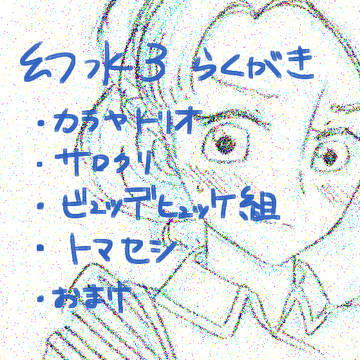 幻水3 らくがき
・カラヤトリオ
・サロクリ
・ビュッデヒュッケ組
・トマセシ
・おまけ